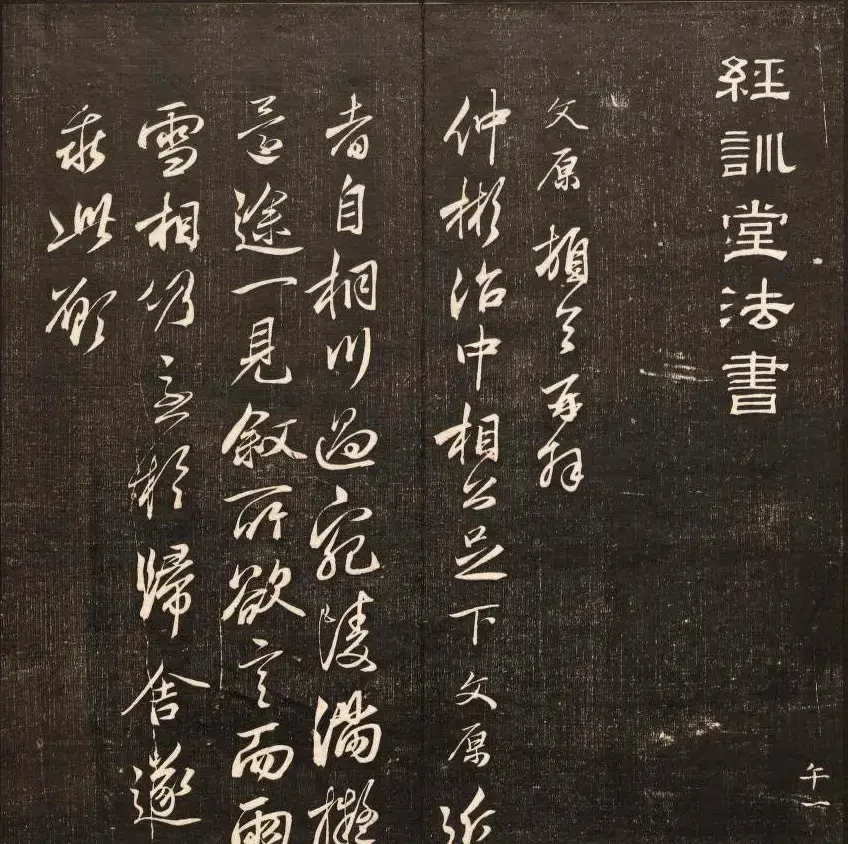 經訓堂法書
文原頓首再拜
仲彬治中相公足下文原近
者自桐川過宛陵滿擬
還途一見敘所欲言而雨
雪相仍急於歸舍遂
乖此願
午一